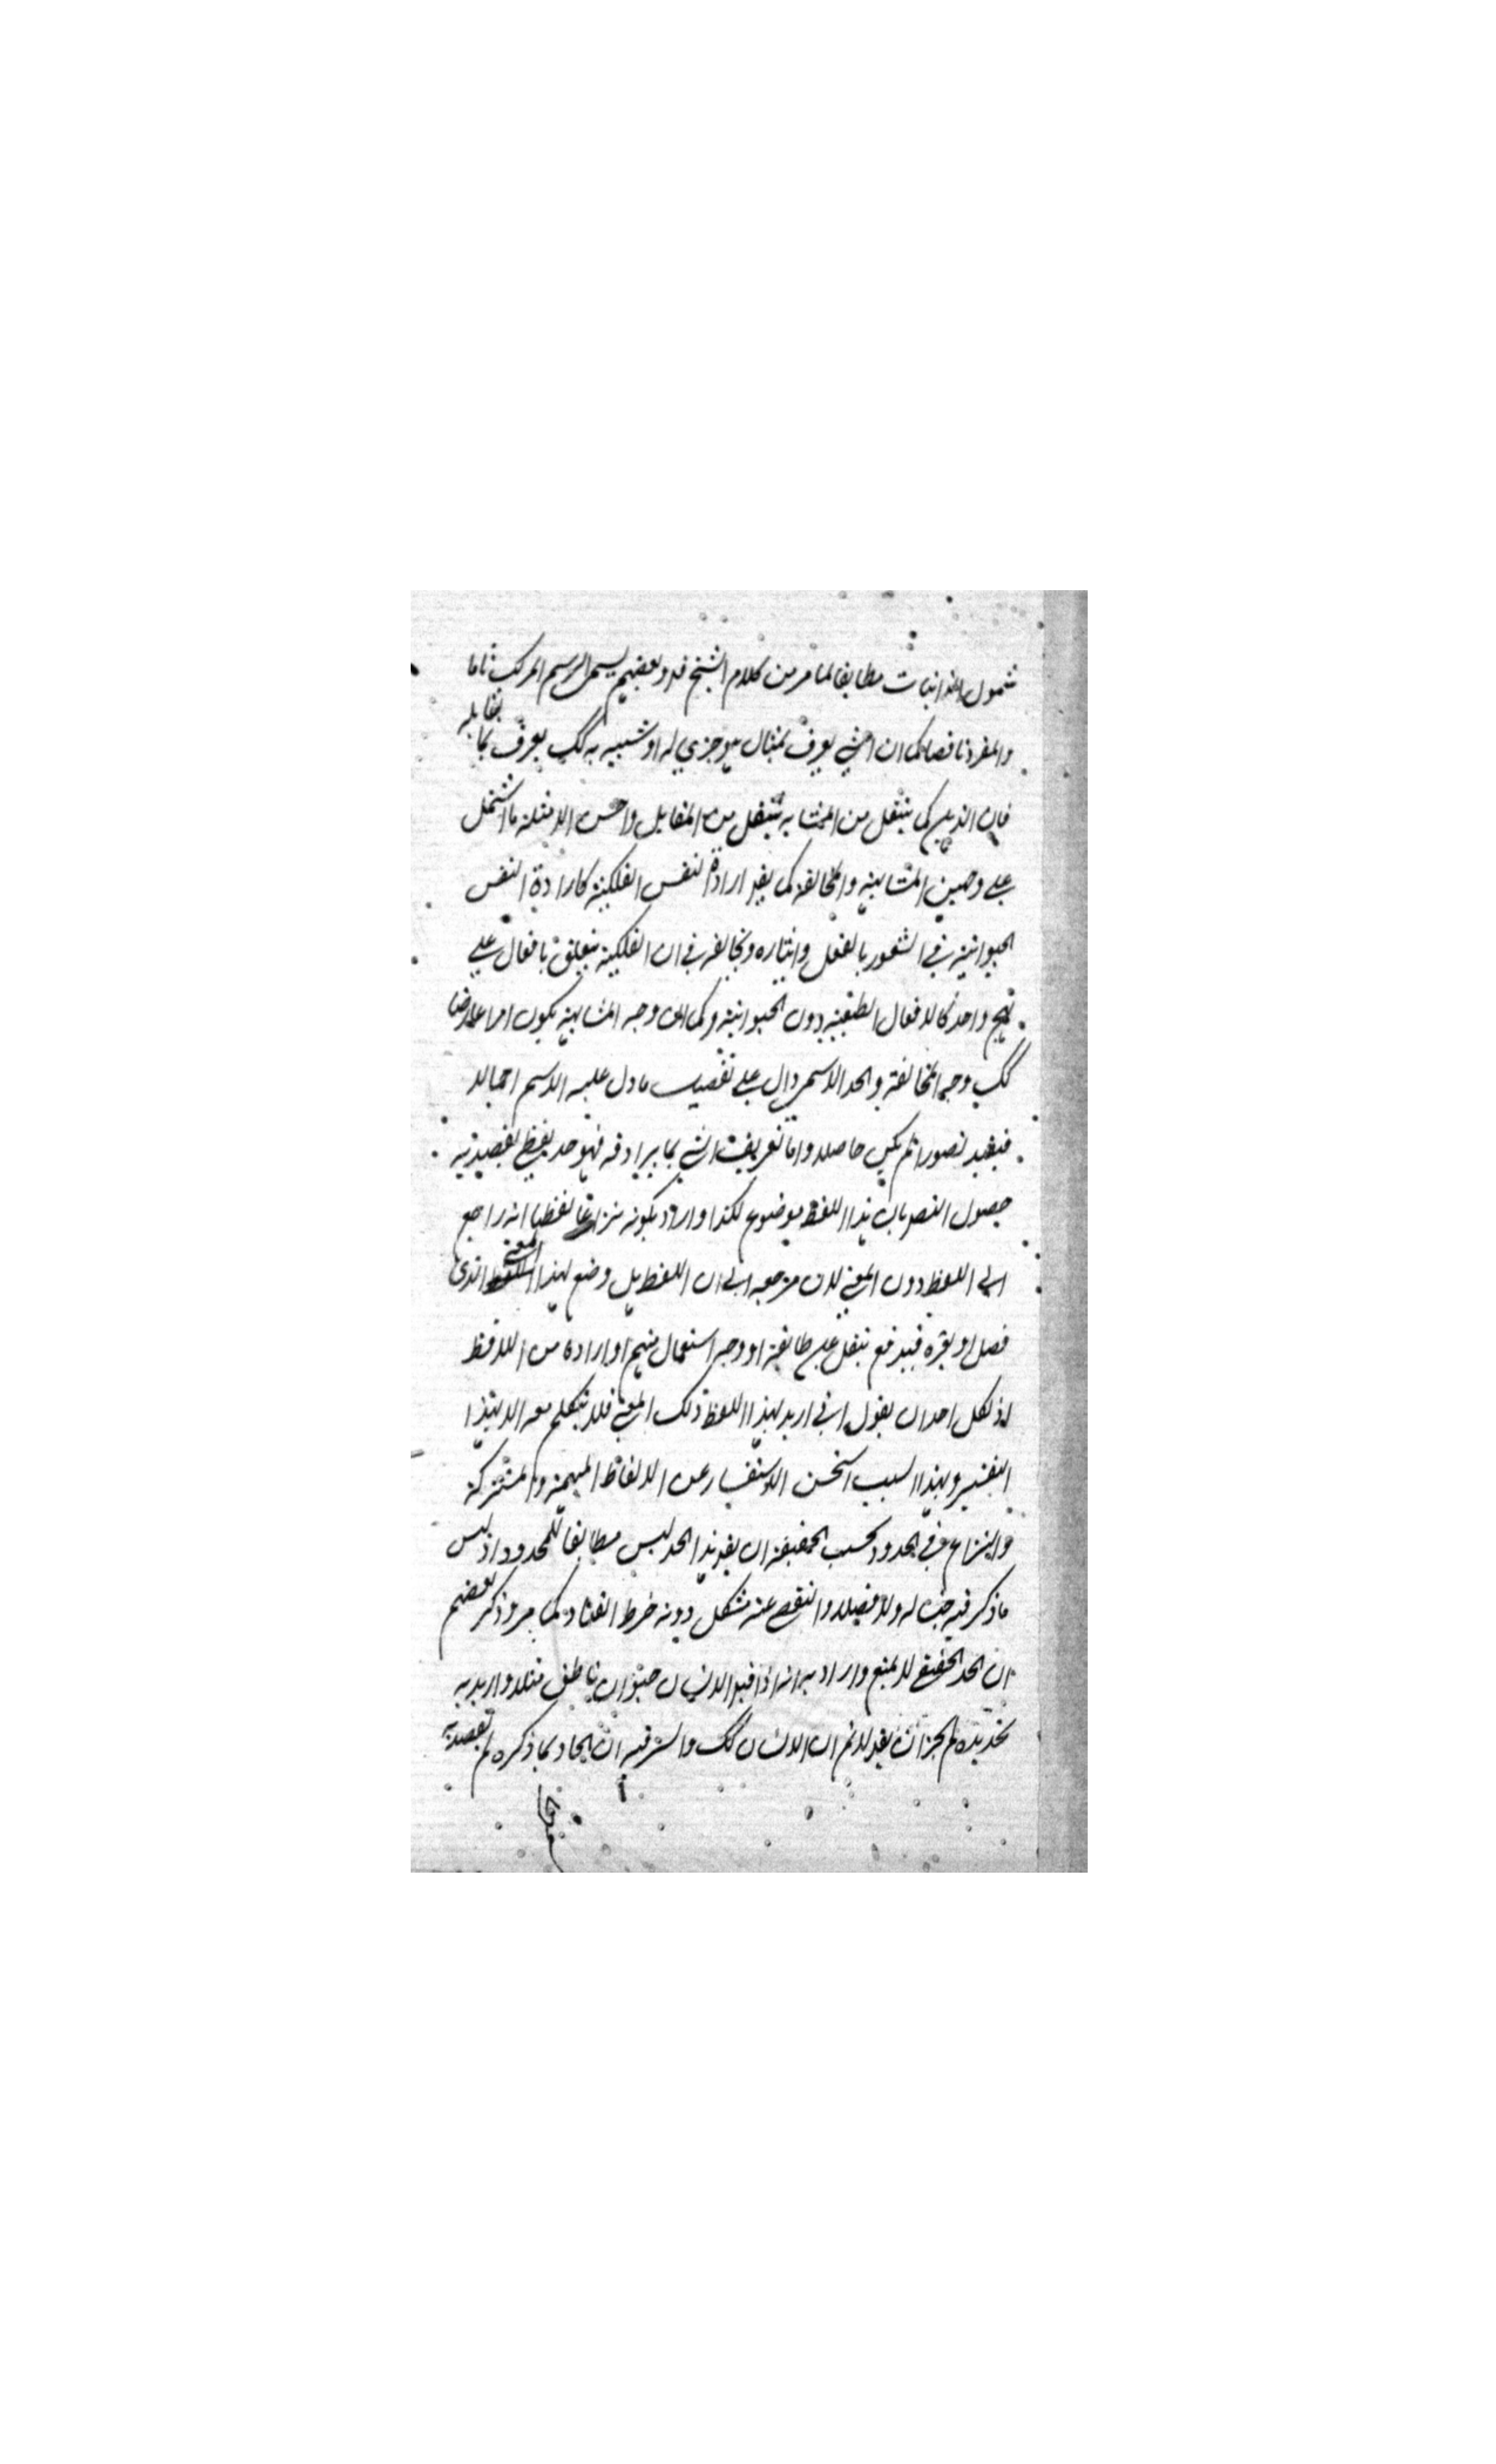 شمول الذاتيات مطابقا لما مر من كلام الشيخ فيه وبعضهم يسمى الرسم المركب تاما
والمفرد ناقصا كما ان الشي يعرف بمثال هو جزي له او شبيه به كك يعرف بما يقابله
فان الذهن كما ينتقل من المشابه ينتقل من المقابل واحسن الامثلة ما اشتمل
على وجهين المشابهة والمخالفة كما يقه ارادة النفس الفلكية كارادة النفس
الحيوانية في الشعور بالفعل وايثاره وتخالفه في ان الفلكية يتعلق بافعال على
نهج واحد كالافعال الطبيعية دون الحيوانية وكما ان وجه المشابهة يكون امرا عارضا
كك وجه المخالفة والحد الاسمى دال على تفصيل ما دل عليه الاسم اجمالا
فيفيد تصورا لم يكن حاصلا واما تعريف الشي بما يرادفه فهو حد لفظي يقصد به
حصول التصر بان هذا اللفظ موضوع لكذا وارادة بكونه نزاعا لفظيا انه راجع
الى اللفظ دون المعنى لان مرجعه الى ان اللفظ هل وضع لهذا المعنى الذي
فصل او بغيره فيندفع بنقل عن طايفة او وجه استعمال منهم او ارادة من اللافظ
اذ لكل احد ان يقول اني اريد بهذا اللفظ ذلك المعنى فلا تتكلم معه الا بهذا
التفسير ولهذا السبب استحسن الاستفسار عن الالفاظ المبهمة والمشتركة
والنزاع في الحدود بحسب الحقيقة ان يقه هذا الحد ليس مطابقا للمحدود اذ ليس
ما ذكر فيه جنسا له ولا فصلا والتفصي عنه مشكل دونه خرط القتاد كما مر وذكر بعضهم
ان الحد الحقيقي لا يمنع واراد به انه اذا قيل الانسان حيوان ناطق مثلا واريد به
تحديده لم يجز ان يقه لا نم ان الانسان كك والسر فيه ان الحاد بما ذكره لم يقصد به